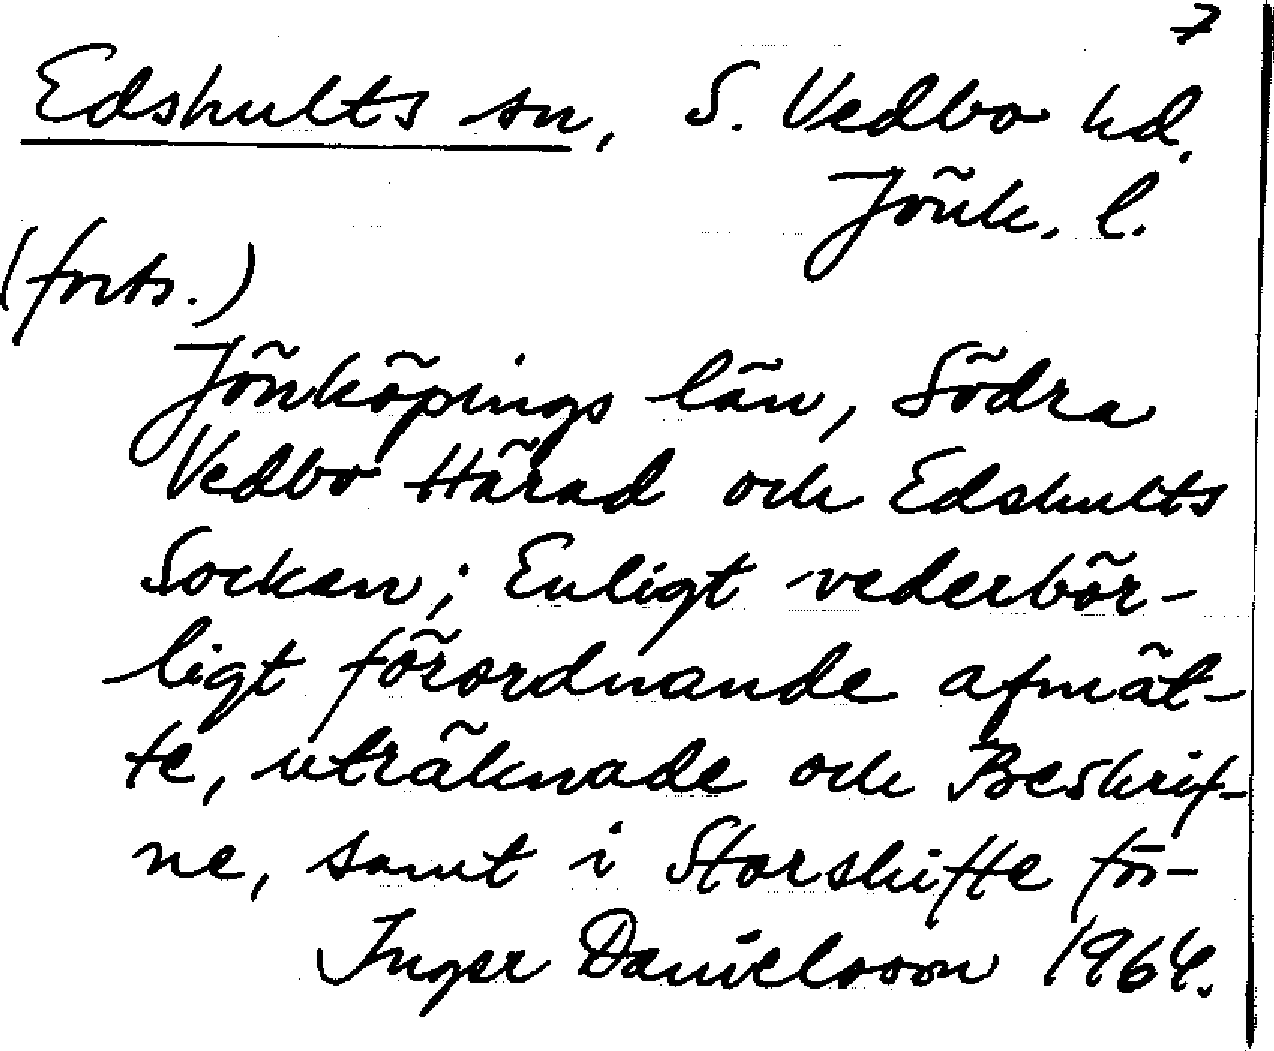 7
Edshults sn, S. Vedbo hd.
Jönk. l.
(forts.)
Jönköpings län, Södra
Vedbo Härad och Edshults
Socken; Enligt vederbör-
ligt förordnande afmät-
te, uträknade och Beskrif-
ne, samt i Storskifte för-
Inger Danielsson 1964.